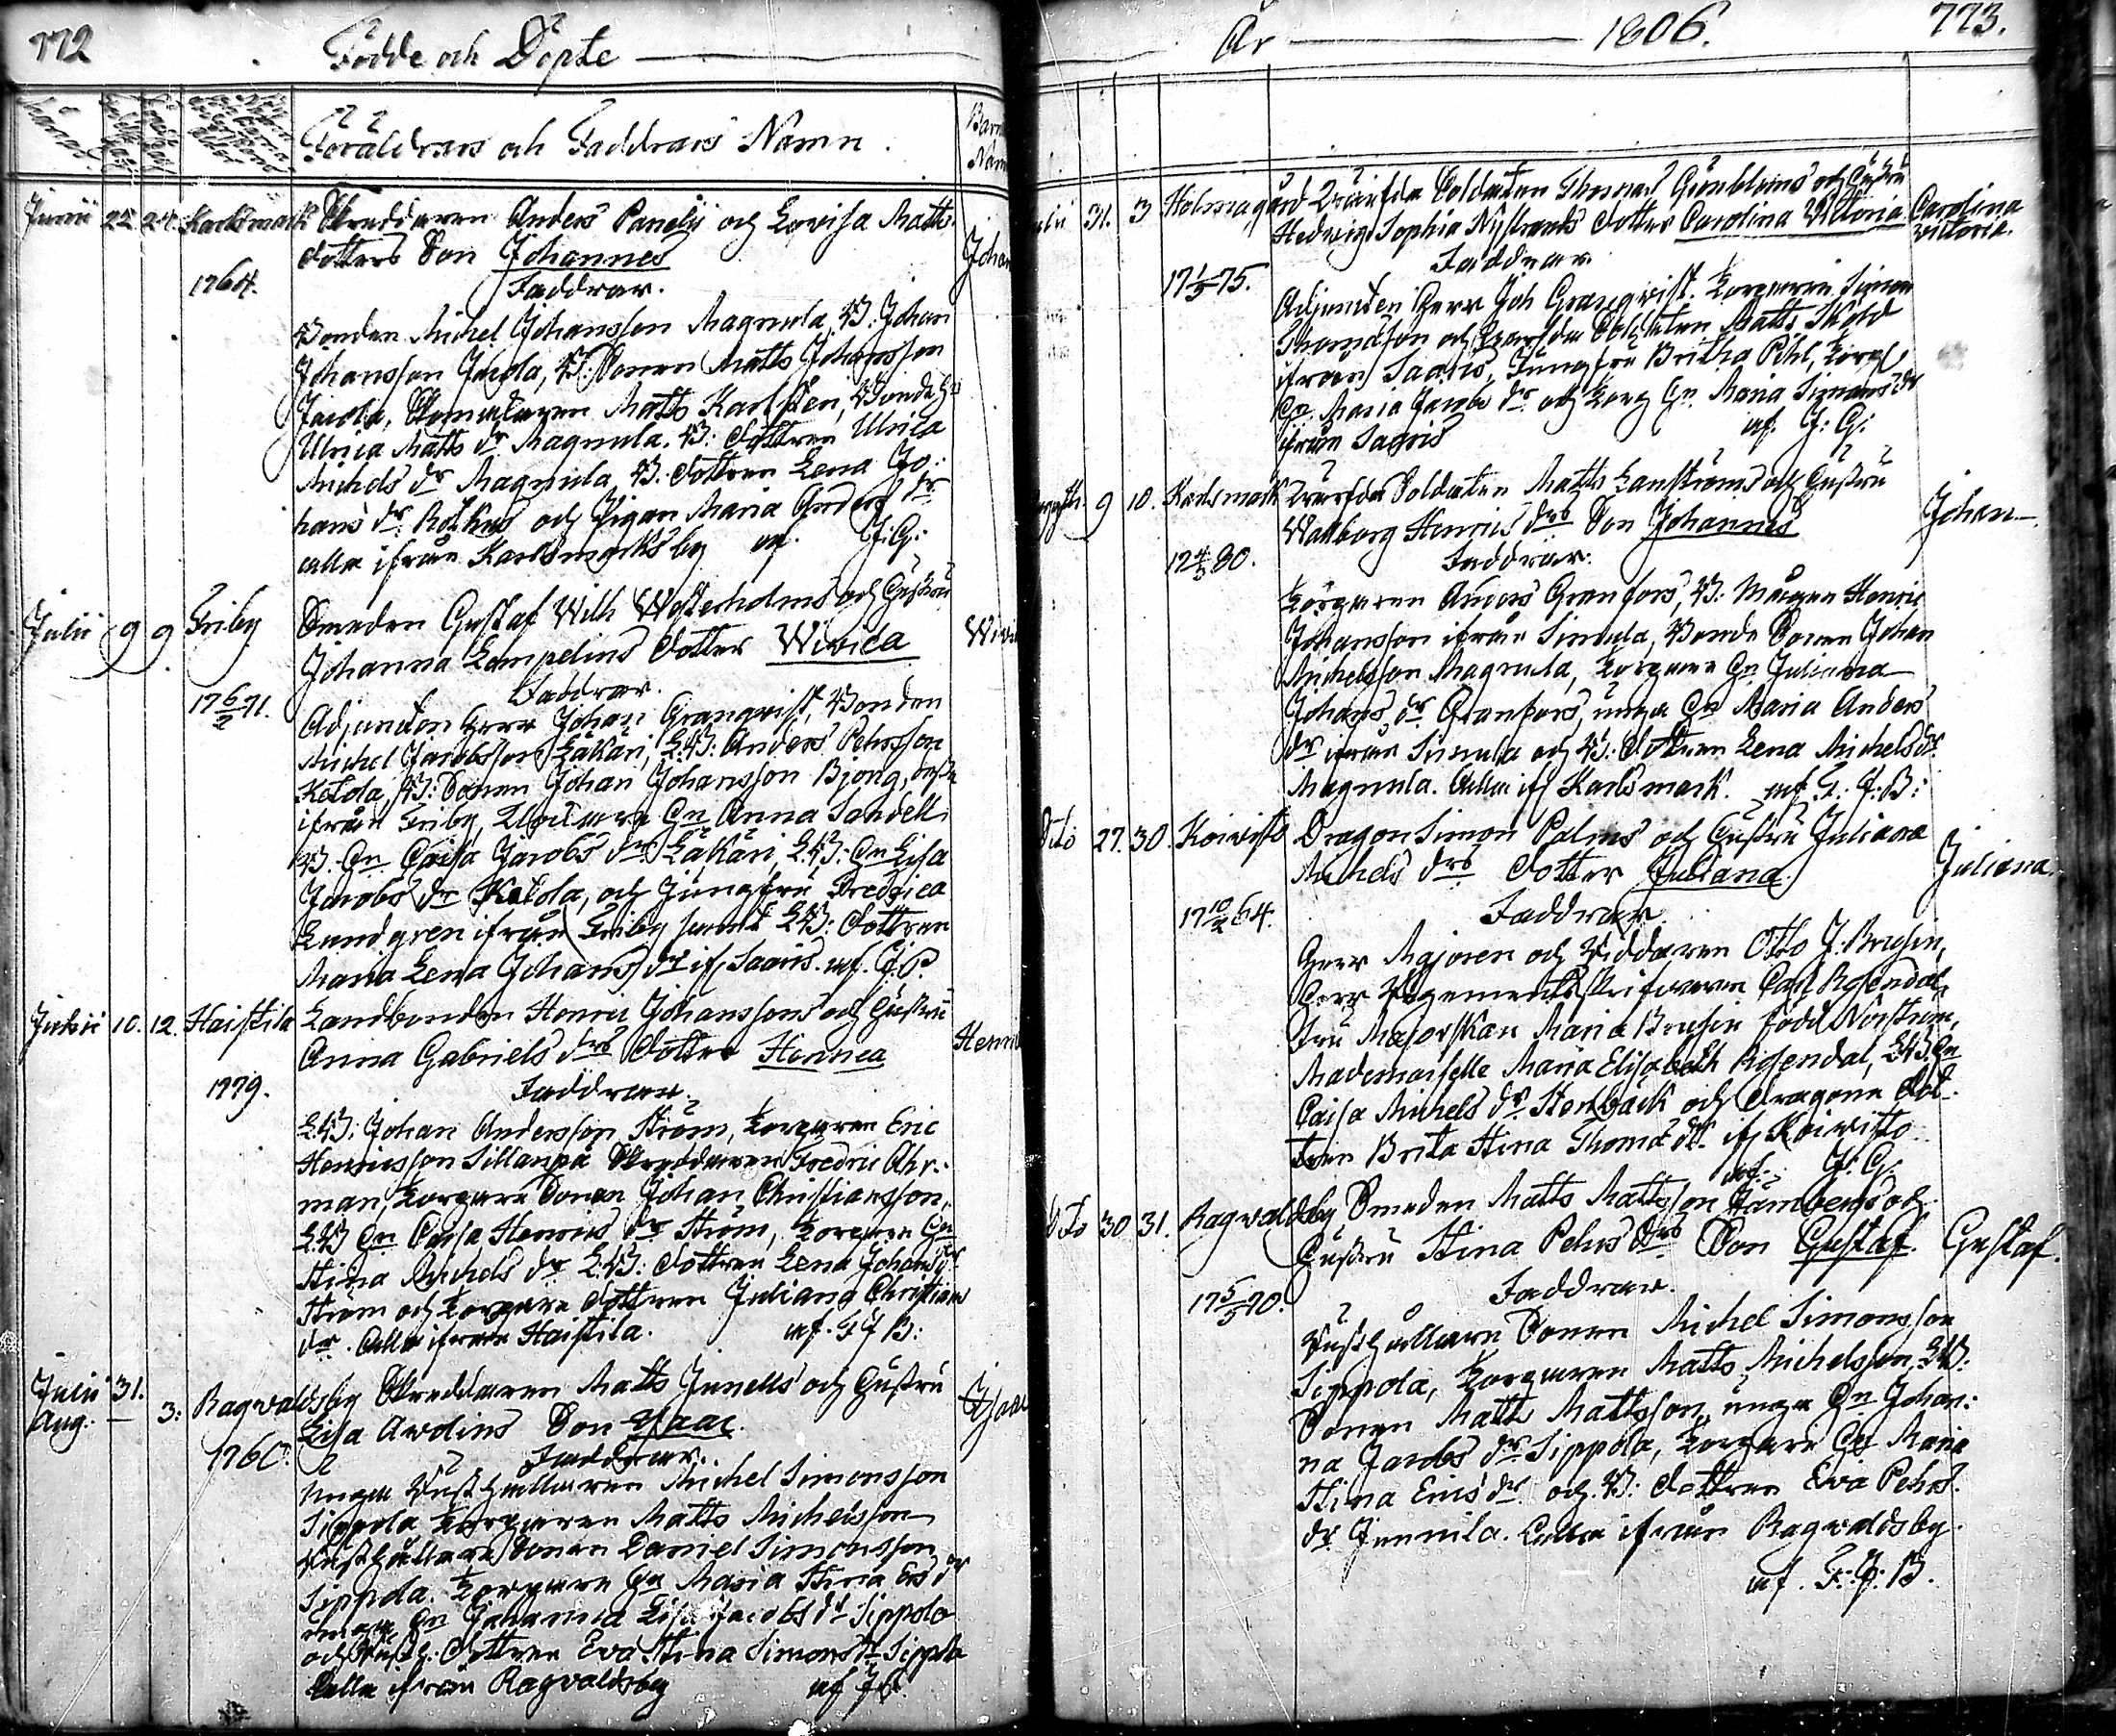 772
Födde och Döpte
Föräldrars och Faddrars Namn.
Barn
Namn
Junii 22 24. Karlsmark Skreddaren Anders Panelii och Lovisa Matts
dotters Son Johannes
Johan
1764.
Faddrar.
Bonden Michel Johansson Magnula, B: Johan
Johansson Jacola, B: Sonen Matts Johansson
Jacola, Matts Karlsten, Bonde Hu
Ulrica Matts dr Magnula. B: dottren Ulrica
Michels dr Magnula, B: dottren Lena Jo:
hans dr och Pigan Maria Anders dr
alla ifrån Karlsmarks by af. J: G:
Julii 9 9 Friby Smeden Gustaf Wilh Westerholms och Hustru
Johanna Lempelius dotter Wivica
Wivi
17 6/2 71.
Faddrar.
Adjuncten Herr Johan Granqvist, Bonden
Michel Jacobsson Läkäri, L:B: Anders Pehrsson
Ketola, B: Sonen Johan Johansson Björg,
ifrån Friby, Hn Anna Sandell
B. Hn Caisa Jacobs dr Läkäri, L:B: Hn Lisa
Jacobs dr Ketola, och Jungfru Fredrica
Lundgren ifrån Friby samt L:B: dottren
Maria Lena Johans dr if. Saaris. af. J: G.
Julii 10. 12. Haistila Landbonden Henric Johanssons och Hustru
Anna Gabriels drs dotter Henrica
Henri
1779.
Faddrar.
L:B: Johan Andersson Ström, Torparen Eric
Henricsson Sillanpä Skreddaren Fredric Ahr-
man, Torpare Sonen Johan Christiansson,
L:B Hn Caisa Henrics dr Ström, Torpare Hn
Stina Michels dr L:B: dottren Lena Johans dr
Ström och Torpare dottren Juliana Christians
dr. Alla ifrån Haistila. af. G J B:
Julii 31.
Aug. 3: Ragvaldsby Skreddaren Matts Junells och Hustru
Lisa Avolins Son Isaac.
Isaac
1760.
Faddrar.
unga Rusthållaren Michel Simonsson
Sippola Torparen Matts Michelsson
Rusthållare Sonen Daniel Simonsson
Sippola. Torpare Hn Maria Stina Ers dr
unga Hn Johanna Lisa Jacobs dr Sippola
och Rusth: dottren Eva Stina Simons dr Sippola
Alla ifrån Ragvaldsby af
År 1806. 773.
Julii 31. 3 Holmagård Soldaten Thomas Grönbloms och Hustru
Hedwig Sophia Nyströms dotter Carolina Victoria
Carolina
Victoria.
17 1/5 75.
Faddrar
Adjuncten Herr Joh Granqvist. Torparen Simon
Thomasson och Soldaten Matts Sköld
ifrån Saaris, Jungfru Britha Pihl, Torp.
Hn Maria Jacobs dr och Torp Hn Maria Simons dr
ifrån Saaris af. J: G:
9 10. Karlsmark Soldaten Matts Lanströms och Hustru
Wallborg Henrics drs Son Johannes
Johan
17 4/5 80.
Faddrar:
Torparen Anders Granfors, B: Mågen Henric
Johansson ifrån Simula, Bonde Sonen Johan
Michelsson Magnula, Torpare Hn Juliana
Johans dr Granfors, unga Hn Maria Anders
dr ifrån Simula och B: dottren Lena Michels dr
Magnula. Alla if Karlsmark. af G: J: B:
Dito 27. 30. Koivisto Dragon Simon Palms och Hustru Juliana
Michels drs dotter Juliana.
Juliana.
17 10/2 64.
Faddrar.
Herr Majoren och Riddaren Otto J. Brusin,
Herr Regements skrifvaren Carl Rosendal,
Fru Majorskan Maria Brusin född Norström,
Mademoiselle Maria Elisabeth Rosendal, L:B. Hn
Caisa Michels dr Stenback och dragone dot-
tren Brita Stina Thomæ dr. if Koivisto
af. J: G:
Dito 30 31. Ragvaldsby Smeden Matts Mattsson Hämbergs och
Hustru Stina Pehrs drs Son Gustaf.
Gustaf.
17 5/5 70.
Faddrar.
Rusthållare Sonen Michel Simonsson
Sippola, Torparen Matts Michelsson, L:B:
Sonen Matts Mattsson, unga Hn Johan:
na Jacobs dr Sippola, Torpare Hn Maria
Stina Erics dr. och B: dottren Eva Pehrs
dr Junnila. Alla ifrån Ragvaldsby.
af. G: J: B.